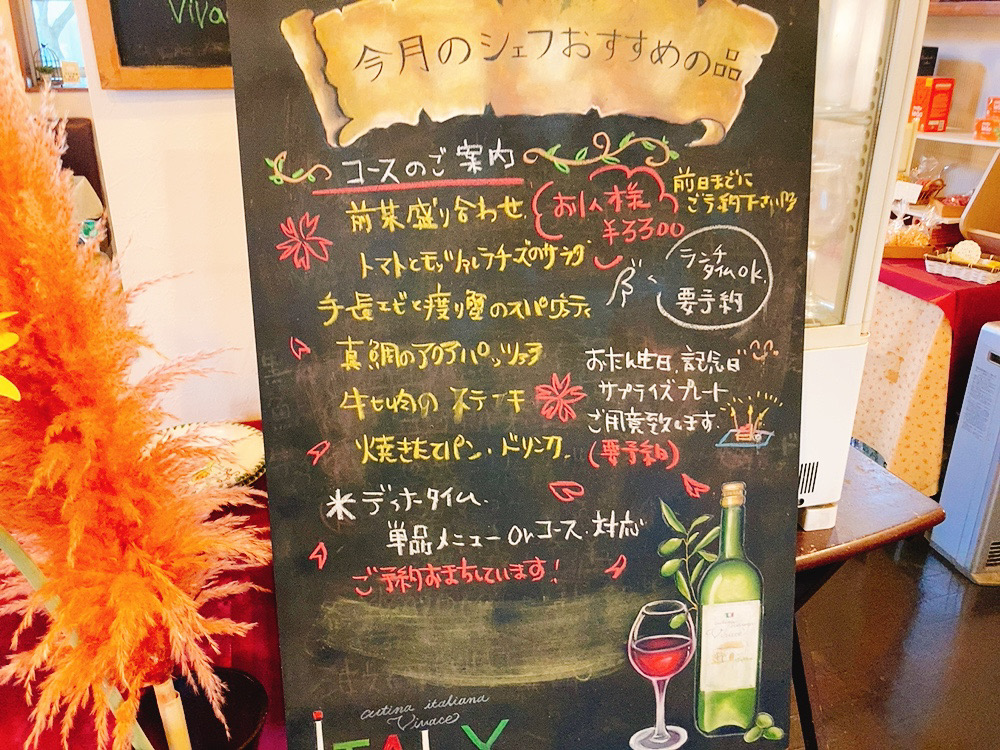 Viva
今月のシェフおすすめの品
コースのご案内
前菜盛り合わせ
お1人様
¥3300
前日までに
ご予約下さい
トマトとモッツァレラチーズのサラダ
ランチ
タイムOK.
要予約
手長エビと渡り蟹のスパゲティ
真鯛のアクアパッツァ
牛もも肉のステーキ
焼きたてパン・ドリンク
おたん生日、記念日
サプライズプレート
ご用意致します.
(要予約)
※ディナータイム.
単品メニューorコース.対応
ご予約おまちしています!
cucina italiana
Vivace
ITALY